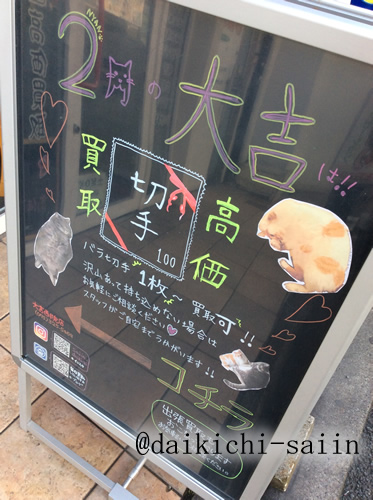 NYAN
2
月の
大吉
は!!
買取
切手
100
高価
バラ切手1枚〜買取可!!
沢山あって持ち込めない場合は
お気軽にご相談ください
スタッフがご自宅までうかがいます!!
コチラ
出張買
@daikichi-saiin